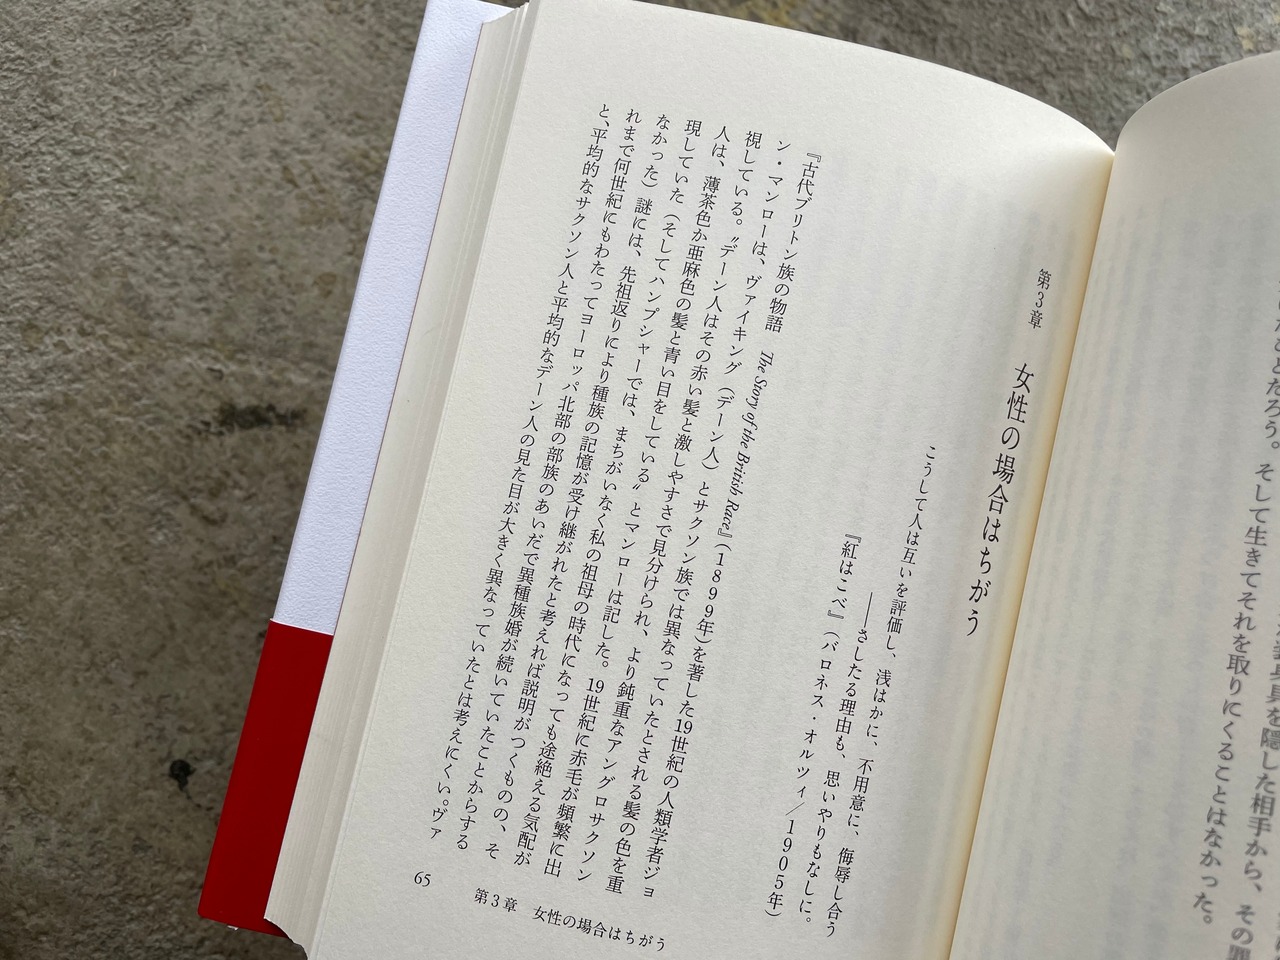 を隠した相手から、その罪
ことだろう。そして生きてそれを取りにくることはなかった。
第3章　女性の場合はちがう
こうして人は互いを評価し、浅はかに、不用意に、侮辱し合う
――さしたる理由も、思いやりもなしに。
『紅はこべ』（バロネス・オルツィ／1905年）
『古代ブリトン族の物語　The Story of the British Race』（1899年）を著した19世紀の人類学者ジョ
ン・マンローは、ヴァイキング（デーン人）とサクソン族では異なっていたとされる髪の色を重
視している。〝デーン人はその赤い髪と激しやすさで見分けられ、より鈍重なアングロサクソン
人は、薄茶色か亜麻色の髪と青い目をしている〟とマンローは記した。19世紀に赤毛が頻繁に出
現していた（そしてハンプシャーでは、まちがいなく私の祖母の時代になっても途絶える気配が
なかった）謎には、先祖返りにより種族の記憶が受け継がれたと考えれば説明がつくものの、そ
れまで何世紀にもわたってヨーロッパ北部の部族のあいだで異種族婚が続いていたことからする
と、平均的なサクソン人と平均的なデーン人の見た目が大きく異なっていたとは考えにくい。ヴァ
65　第3章　女性の場合はちがう